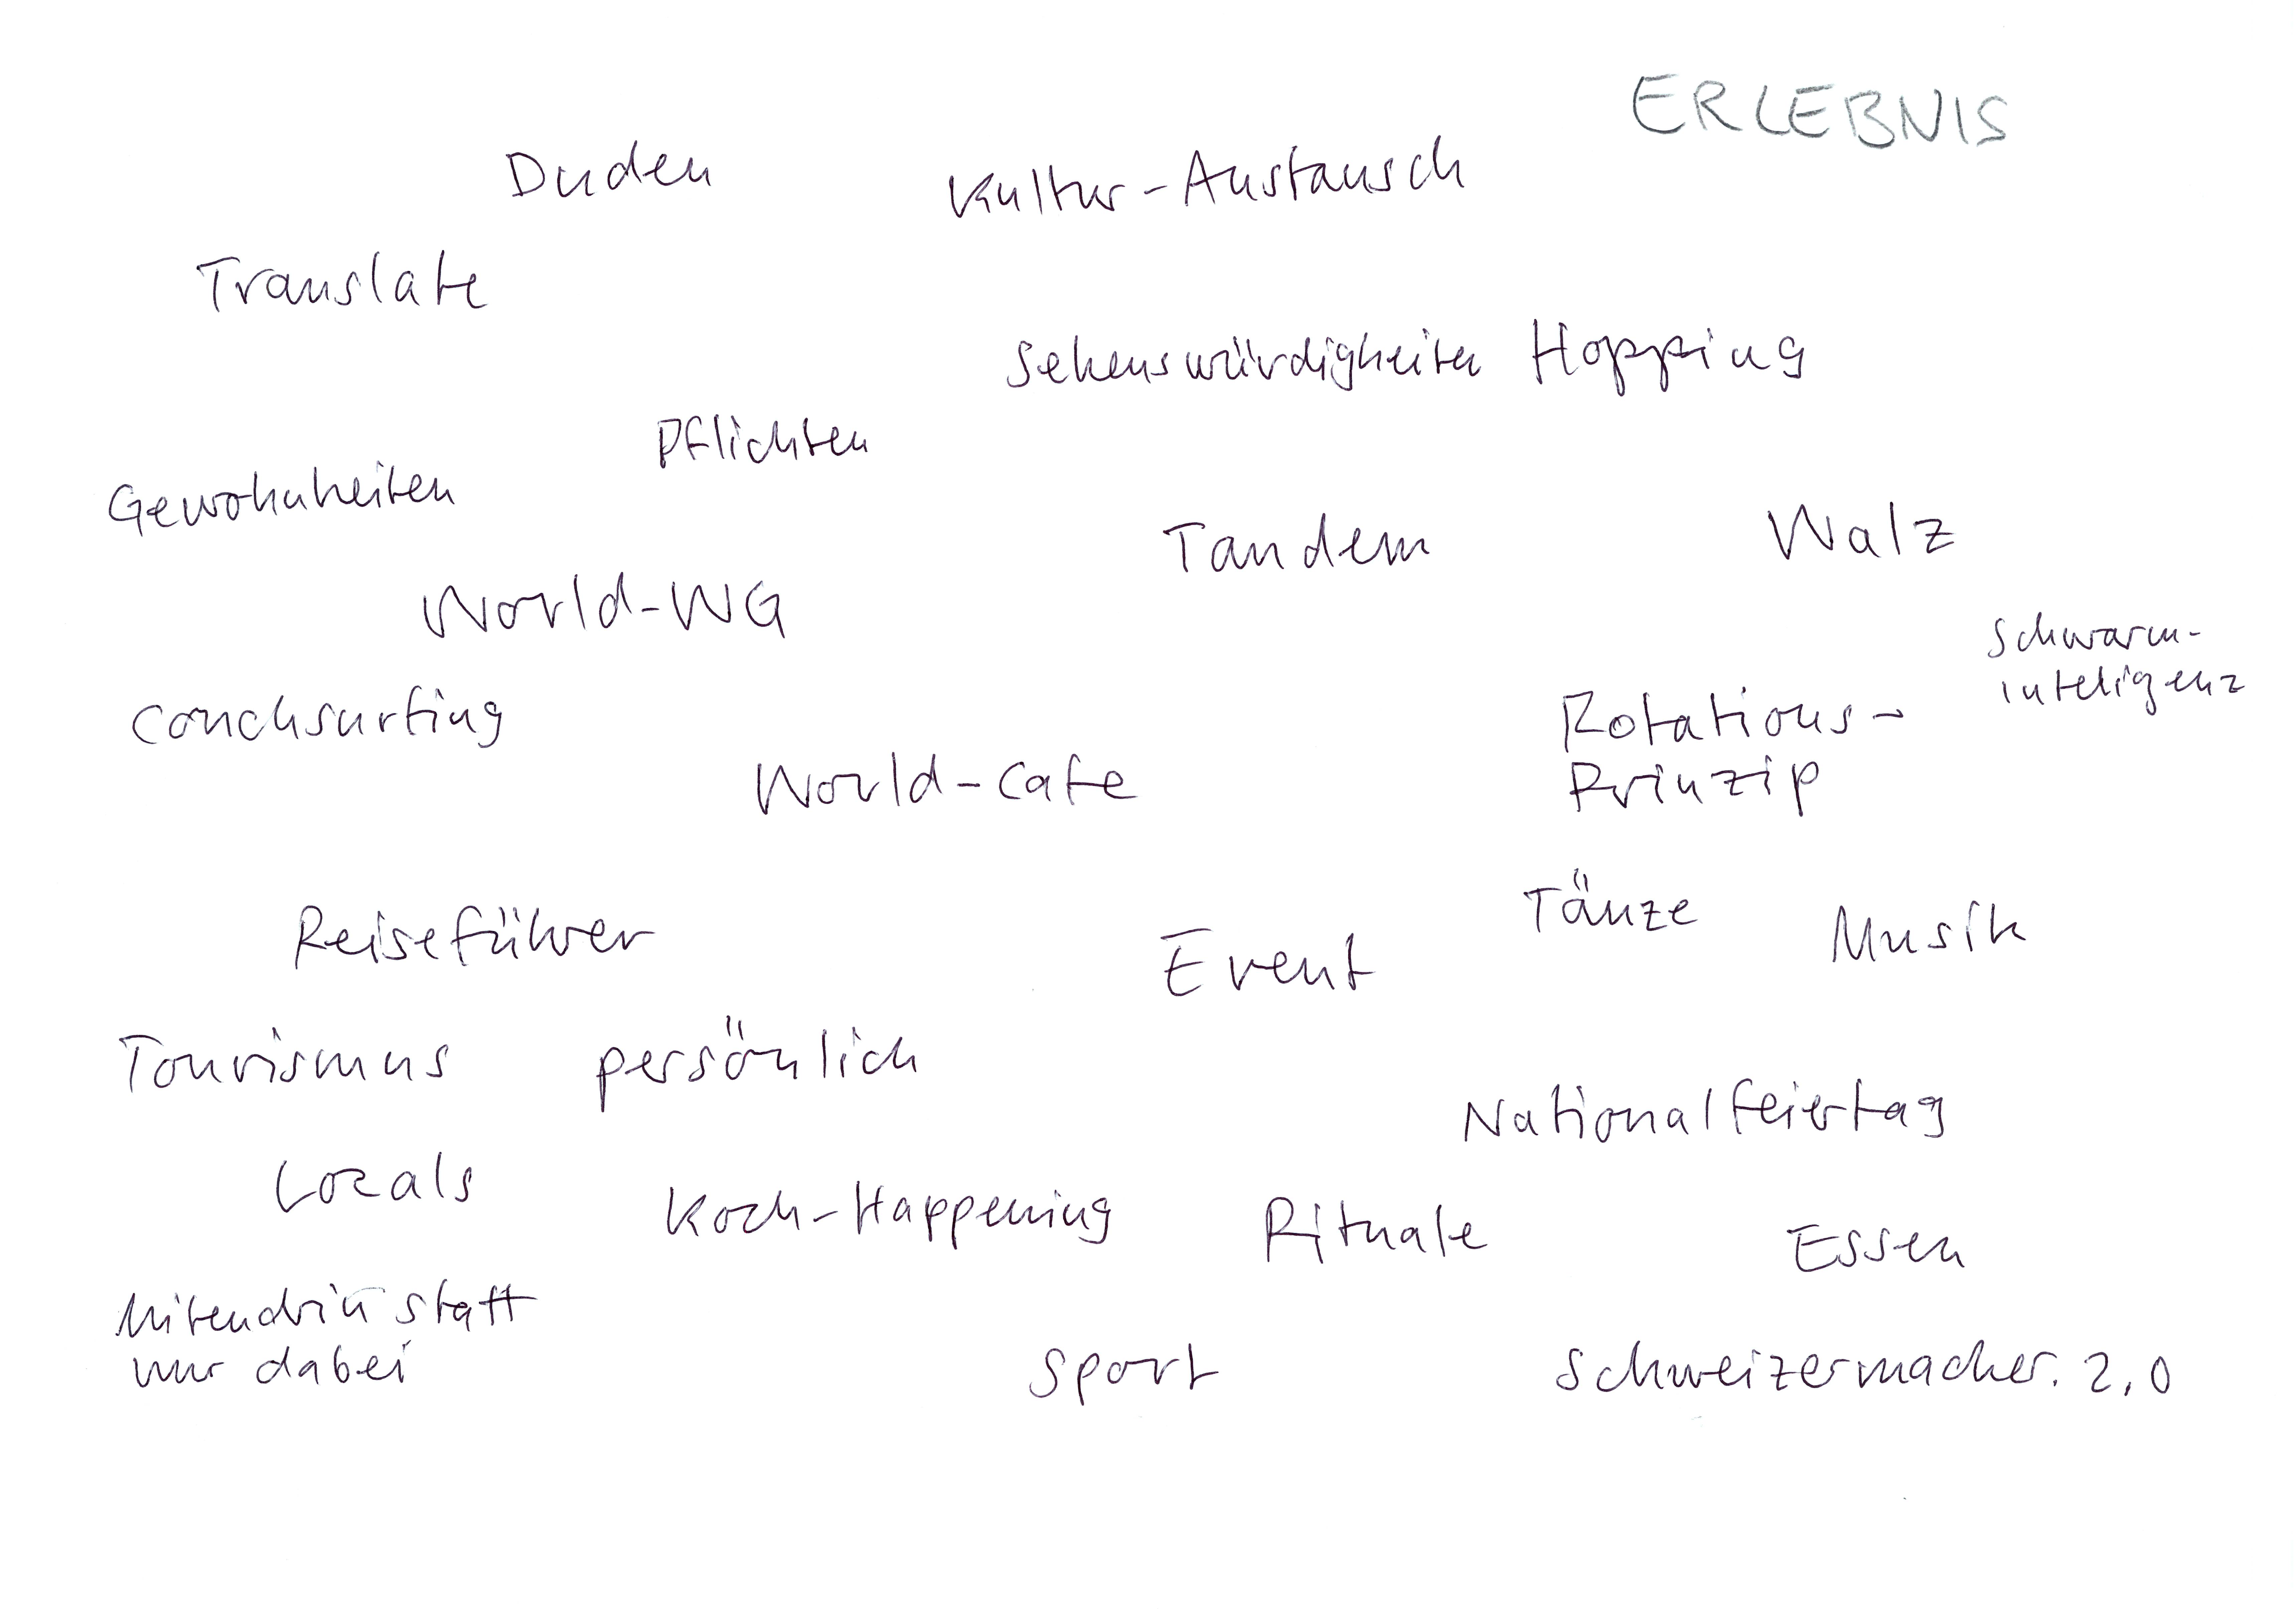 ERLEBNIS
Duden
Kultur-Austausch
Translate
Sehenswürdigkeiten Hopping
Pflichten
Gewohnheiten
Tandem
Walz
World-WG
Schwarm-
inteligenz
Couchsurfing
Rotations-
Prinzip
World-Cafe
Tänze
Reiseführer
Event
Musik
Tourismus
persönlich
Nationalfeiertag
Locals
Koch-Happening
Rituale
Essen
Mitendrin statt
nur dabei
Sport
Schweizermacher. 2.0